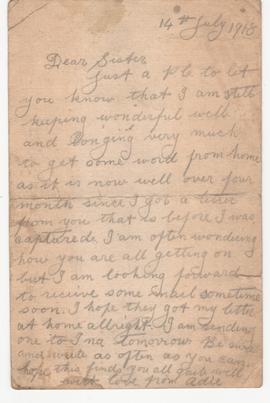 14th July 1918
Dear Sister
Just a P.C. to let
you know that I am still
keeping wonderful well
and longing very much
to get some word from home
as it is now well over four
month since I got a letter
from you that is before I was
captured. I am often wondering
how you are all getting on. I
but I am looking forward
to receive some mail sometime
soon. I hope they got my
at home allright. I am sending
one to Ina tomorrow. Be sure
and write as often as you can,
hope this finds you all quite well
with love from